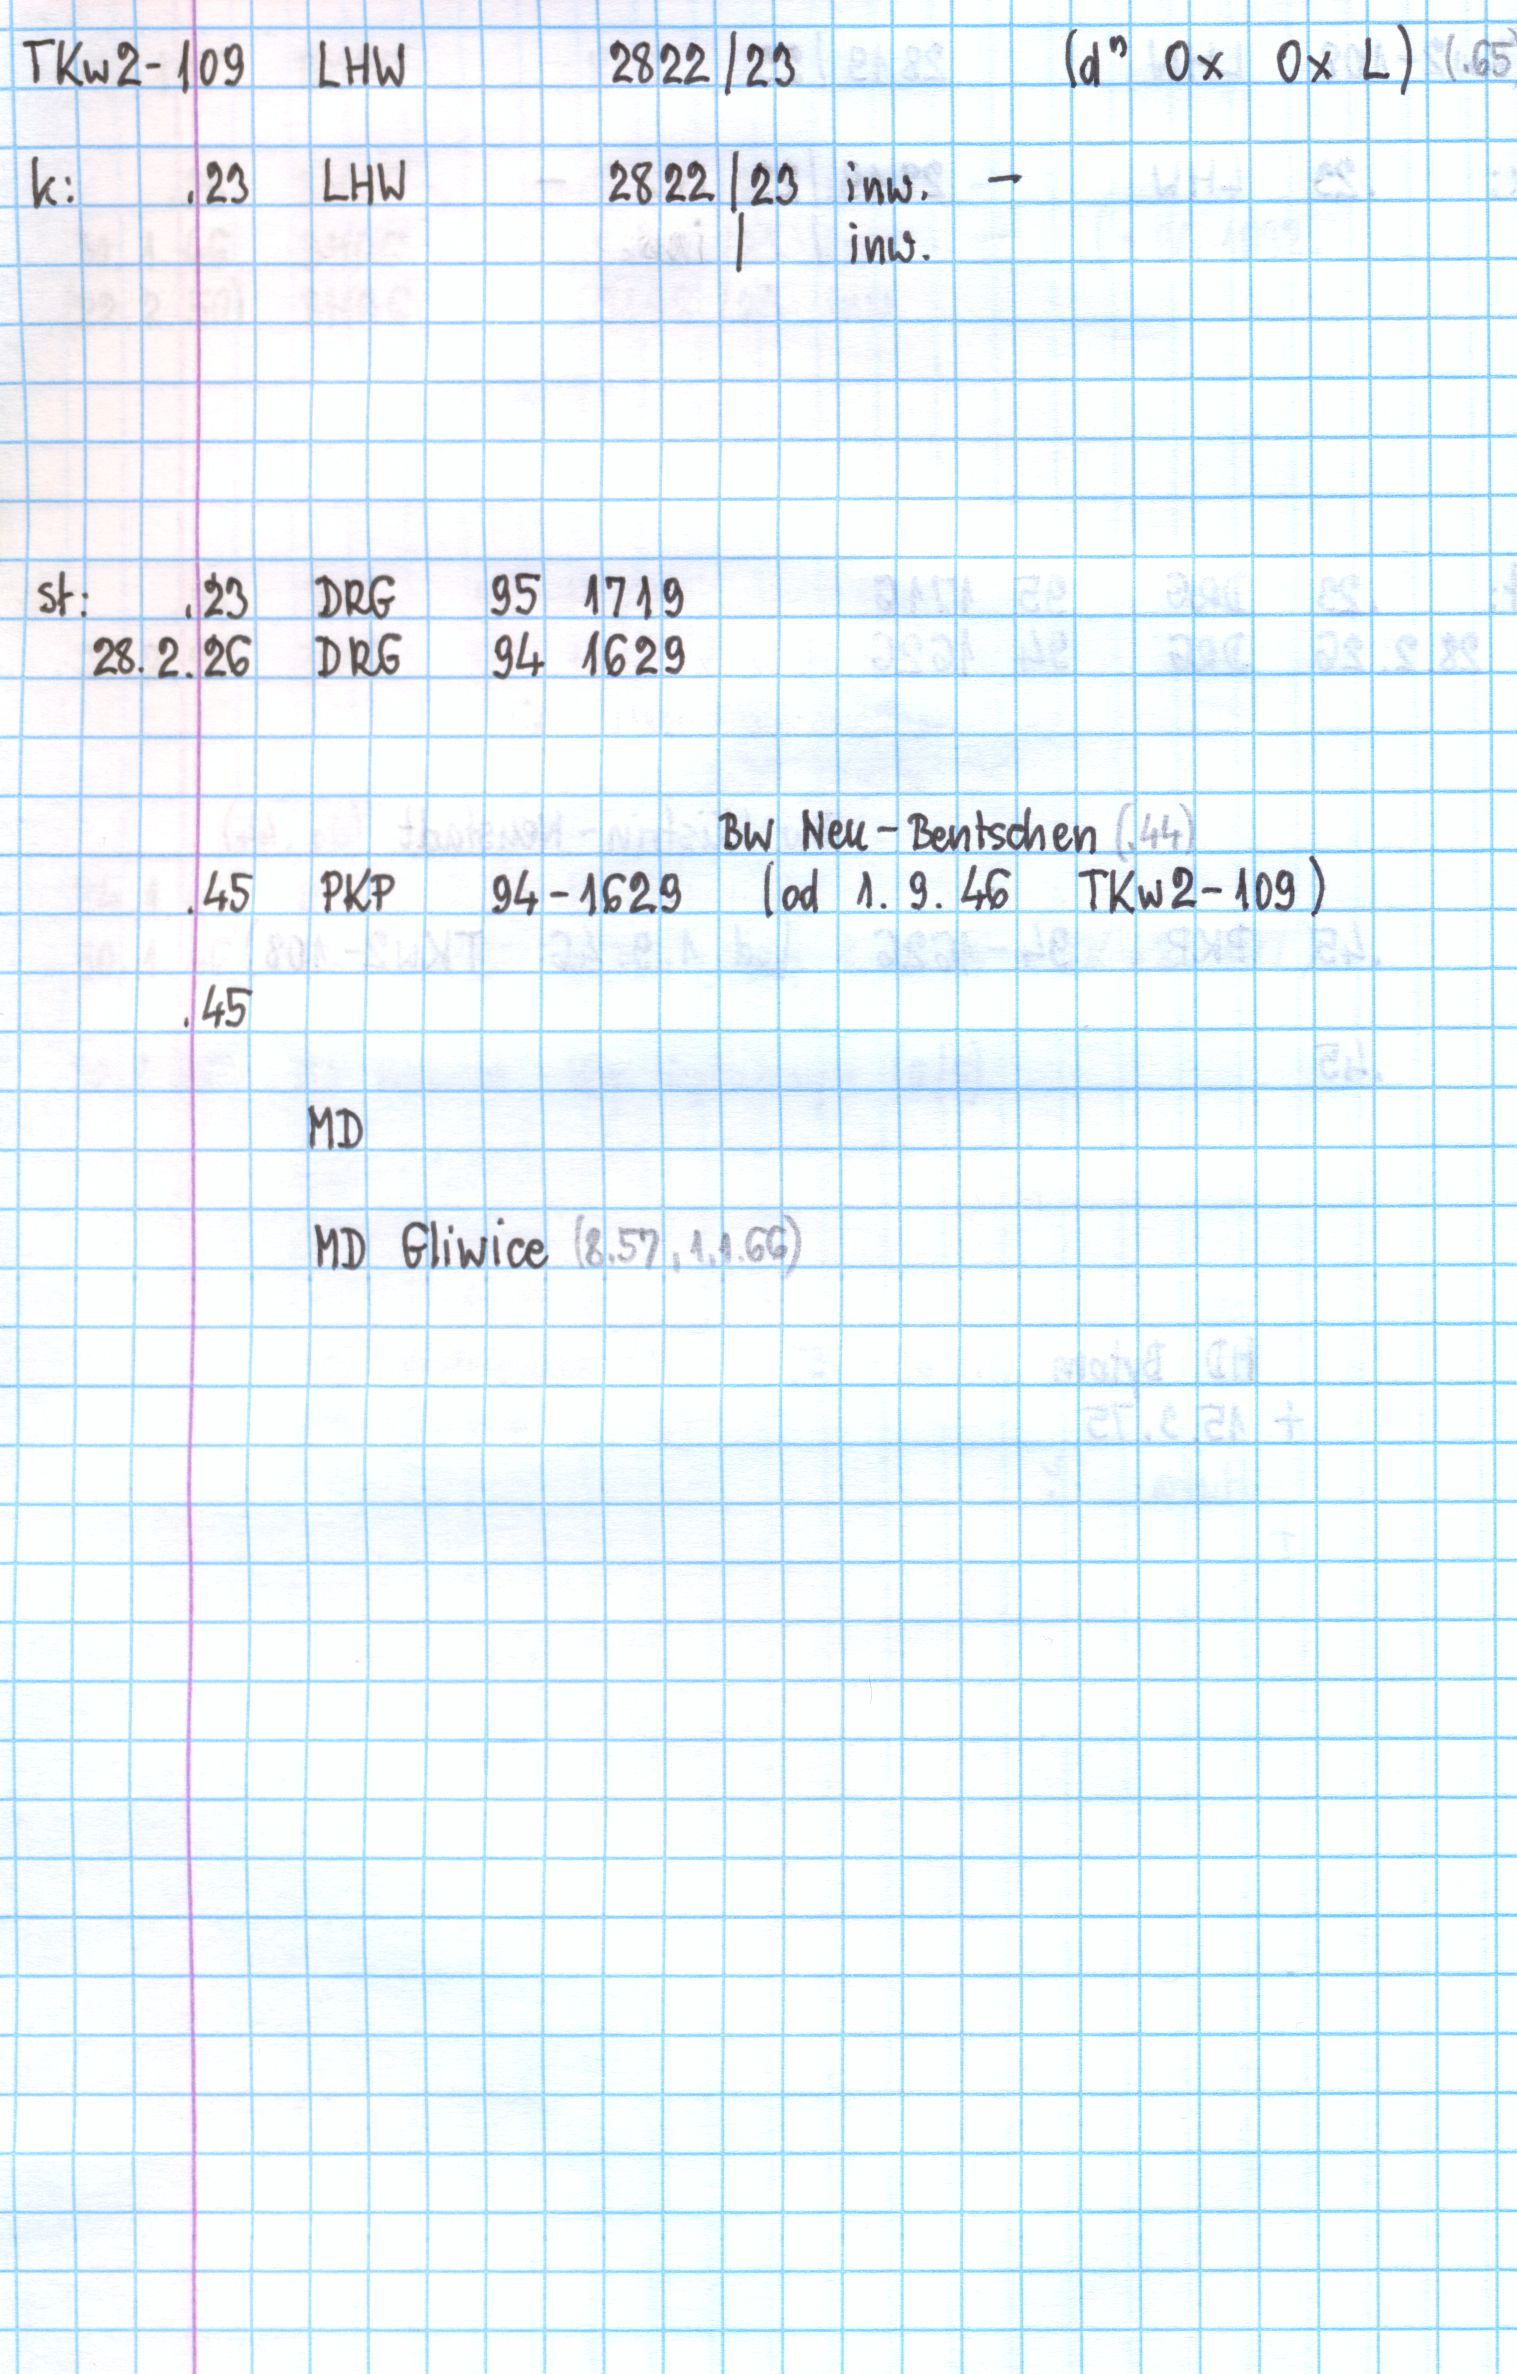 TKw2-109 LHW 2822/23 (d" 0x 0x L) (.65)
k: .23 LHW 2822/23 inw. -
/ inw.
st: .23 DRG 95 1719
28.2.26 DRG 94 1629
Bw Neu-Bentschen (.44)
.45 PKP 94-1629 (od 1.9.46 TKw2-109)
.45
MD
MD Gliwice (8.57, 1.1.66)